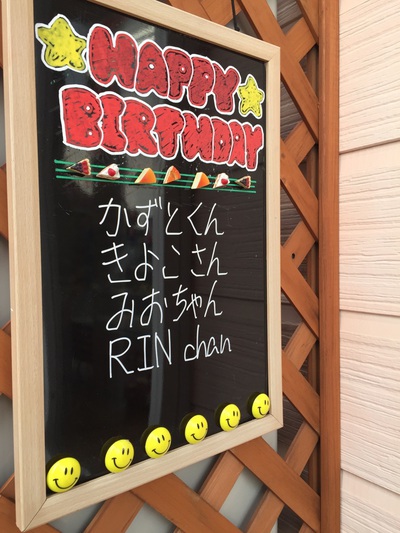 HAPPY
BIRTHDAY
かずとくん
きよこさん
みおちゃん
RIN chan